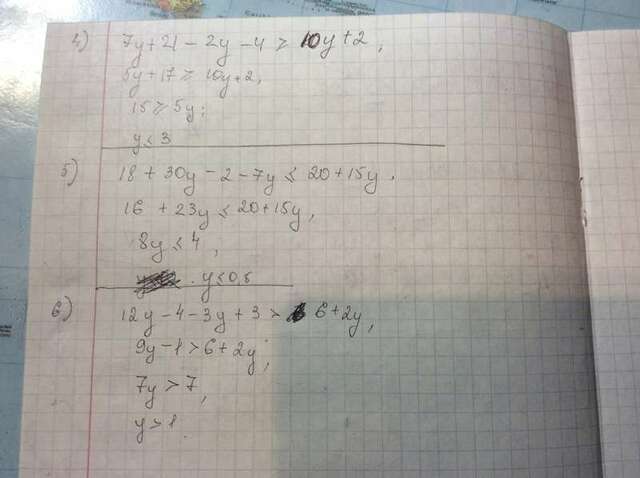 4) 7y+21-2y-4 ≥ 10y+2,
5y+17 ≥ 10y+2,
15 ≥ 5y;
y ≤ 3
5) 18 + 30y - 2 - 7y ≤ 20+15y,
16 + 23y ≤ 20+15y,
8y ≤ 4,
y ≤ 0,5
6) 12y - 4 - 3y + 3 > 6+2y,
9y-1 > 6+2y;
7y > 7,
y > 1.